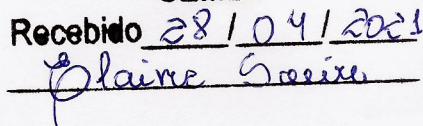 Recebido 28 / 04 / 2021
Elaine